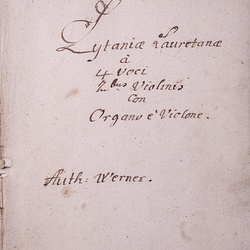 Lytaniæ Lauretanæ
à
4 Voci
2bus Violinis
con
Organo è Violone.
Auth: Werner.